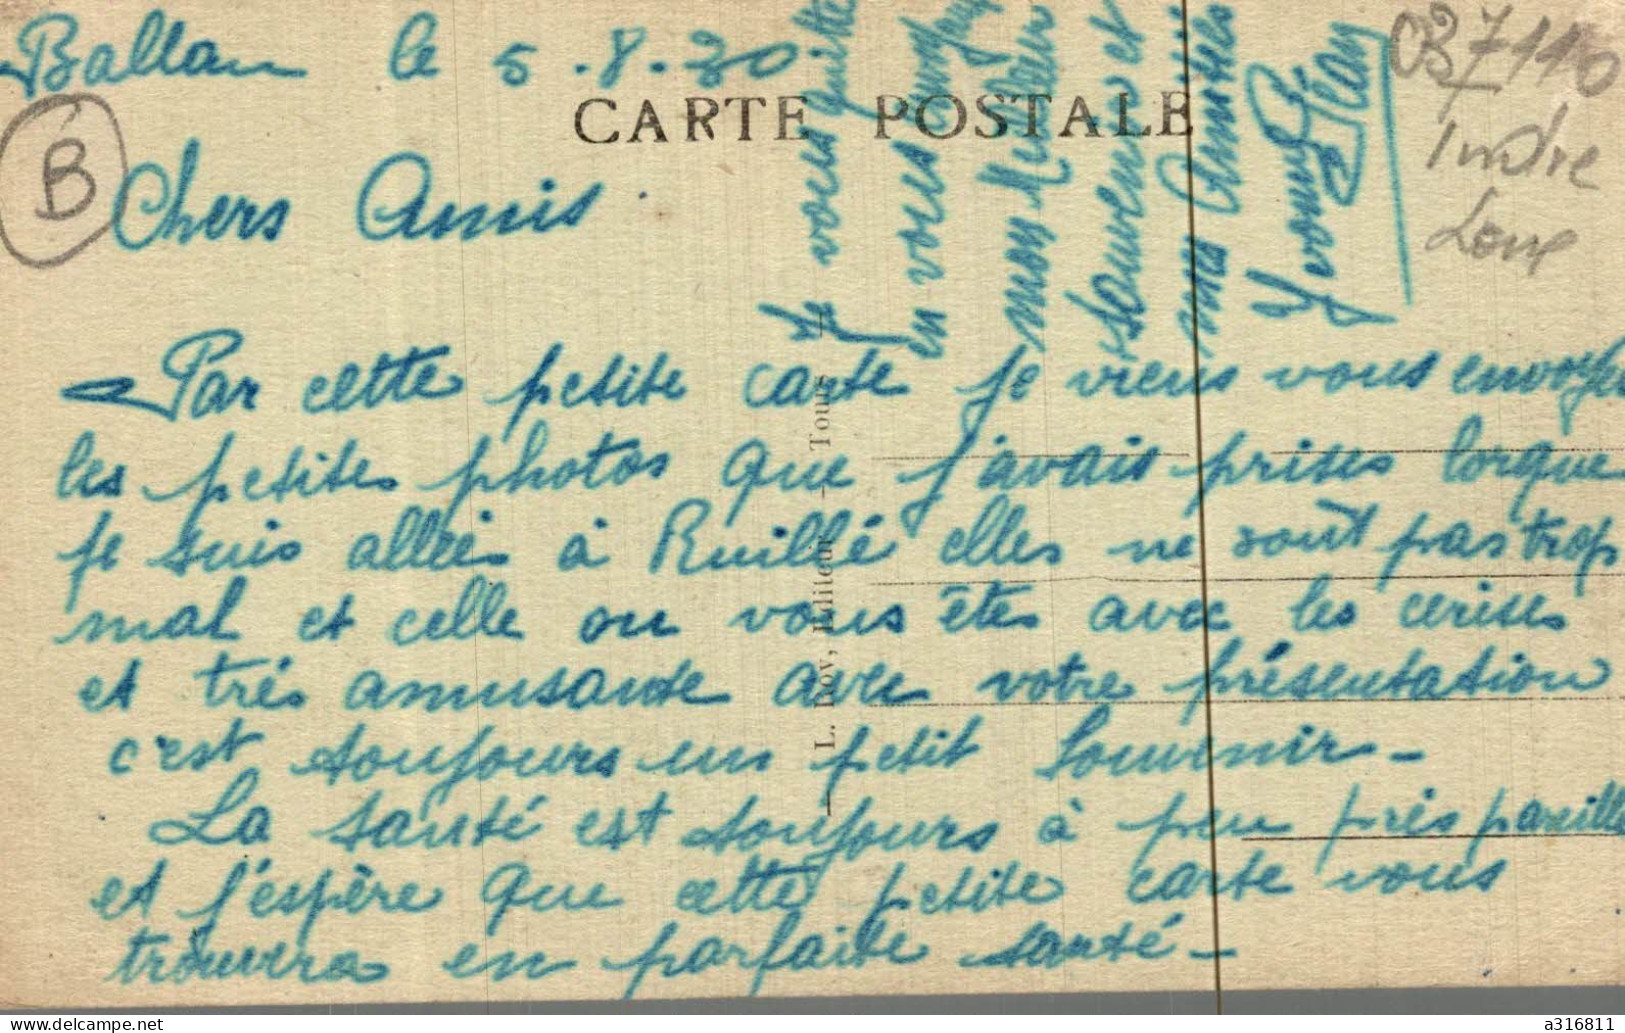 Ballan le 5.8.30
CARTE POSTALE
B
Chers Amis
Par cette petite carte je viens vous envoyer
les petites photos que j'avais prises lorque
je suis allées à Ruillé elles ne sont pas trop
mal et celle ou vous êtes avec les cerises
et trés amusante avec votre présentation
c'est toujours un petit Souvenir -
La santé est toujours à peu prés pareille
et j'espère que cette petite carte vous
trouvera en parfaite santé -
Je vous quitte
en vous
mon Meilleur
souvenir et
mes Amitiés
Yvonne Jean
37110
Indre
Loire
L. Dov, Editeur - Tours
a316811